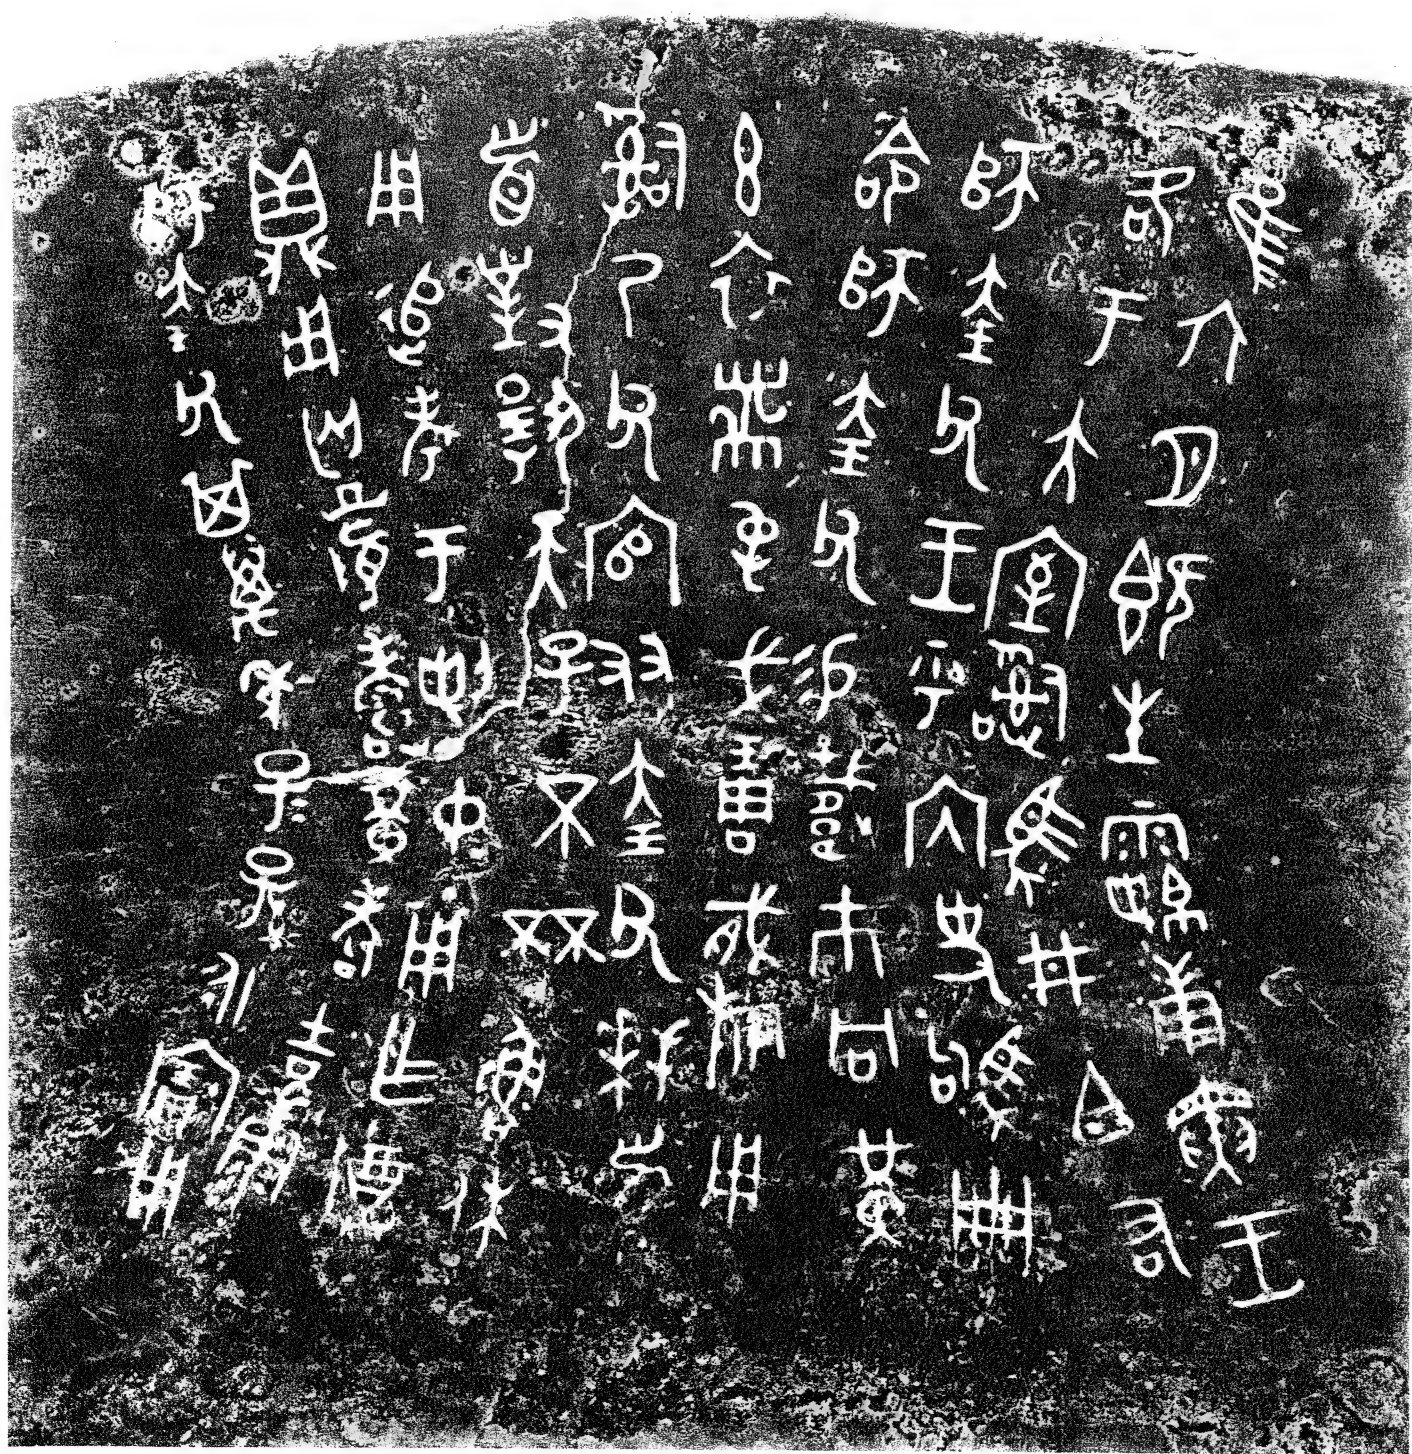 隹六月既生霸庚寅王
各于大室𤔲馬井白右
師𡘇父王乎内史駒冊
命師𡘇父易𩁹巿冋黃
玄衣黹屯戈琱胾旂用
𤔲乃父官友𡘇父拜𩒨
首對揚天子不㔻魯休
用追考于剌中用乍尊
鼎用匄眉壽黃耇吉康
師𡘇父其萬年子子孫永寶用